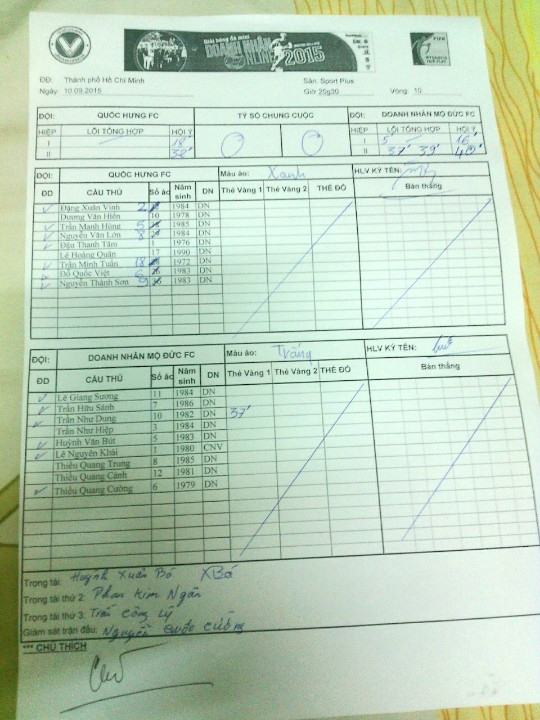 Giải bóng đá mini
DOANH NHÂN
ONLINE 2015
ĐĐ: Thành phố Hồ Chí Minh
Sân: Sport Plus
Ngày: 10.09.2015
Giờ 20g30
Vòng: 10
ĐỘI: QUỐC HƯNG FC
TỶ SỐ CHUNG CUỘC
ĐỘI: DOANH NHÂN MỘ ĐỨC FC
HIỆP LỖI TỔNG HỢP HỘI Ý
HIỆP LỖI TỔNG HỢP HỘI Ý
I 18' 0 0 I 5 16'
II 32' II 37' 39' 40'
ĐỘI: QUỐC HƯNG FC Màu áo: Xanh HLV KÝ TÊN:
ĐD CẦU THỦ Số áo Năm sinh DN Thẻ Vàng 1 Thẻ Vàng 2 THẺ ĐỎ Bàn thắng
Đặng Xuân Vinh 2 1984 DN
Dương Văn Hiền 10 1978 DN
Trần Mạnh Hùng 5 1985 DN
Nguyễn Văn Lớn 8 1984 DN
Đậu Thanh Tâm 1 1976 DN
Lê Hoàng Quân 17 1990 DN
Trần Minh Tuấn 18 1972 DN
Đỗ Quốc Việt 6 1983 DN
Nguyễn Thành Sơn 9 1983 DN
ĐỘI: DOANH NHÂN MỘ ĐỨC FC Màu áo: Trắng HLV KÝ TÊN:
ĐD CẦU THỦ Số áo Năm sinh DN Thẻ Vàng 1 Thẻ Vàng 2 THẺ ĐỎ Bàn thắng
Lê Giang Sương 11 1984 DN
Trần Hữu Sánh 7 1986 DN
Trần Như Dung 10 1982 DN 37'
Trần Như Hiệp 3 1984 DN
Huỳnh Văn Bút 5 1983 DN
Lê Nguyên Khải 1 1980 CNV
Thiều Quang Trung 8 1985 DN
Thiều Quang Cảnh 12 1981 DN
Thiều Quang Cường 6 1979 DN
Trọng tài: Huỳnh Xuân Bó XBó
Trọng tài thứ 2: Phan Kim Ngân
Trọng tài thứ 3: Trần Công Lý
Giám sát trận đấu: Nguyễn Quốc Cường
*** CHÚ THÍCH